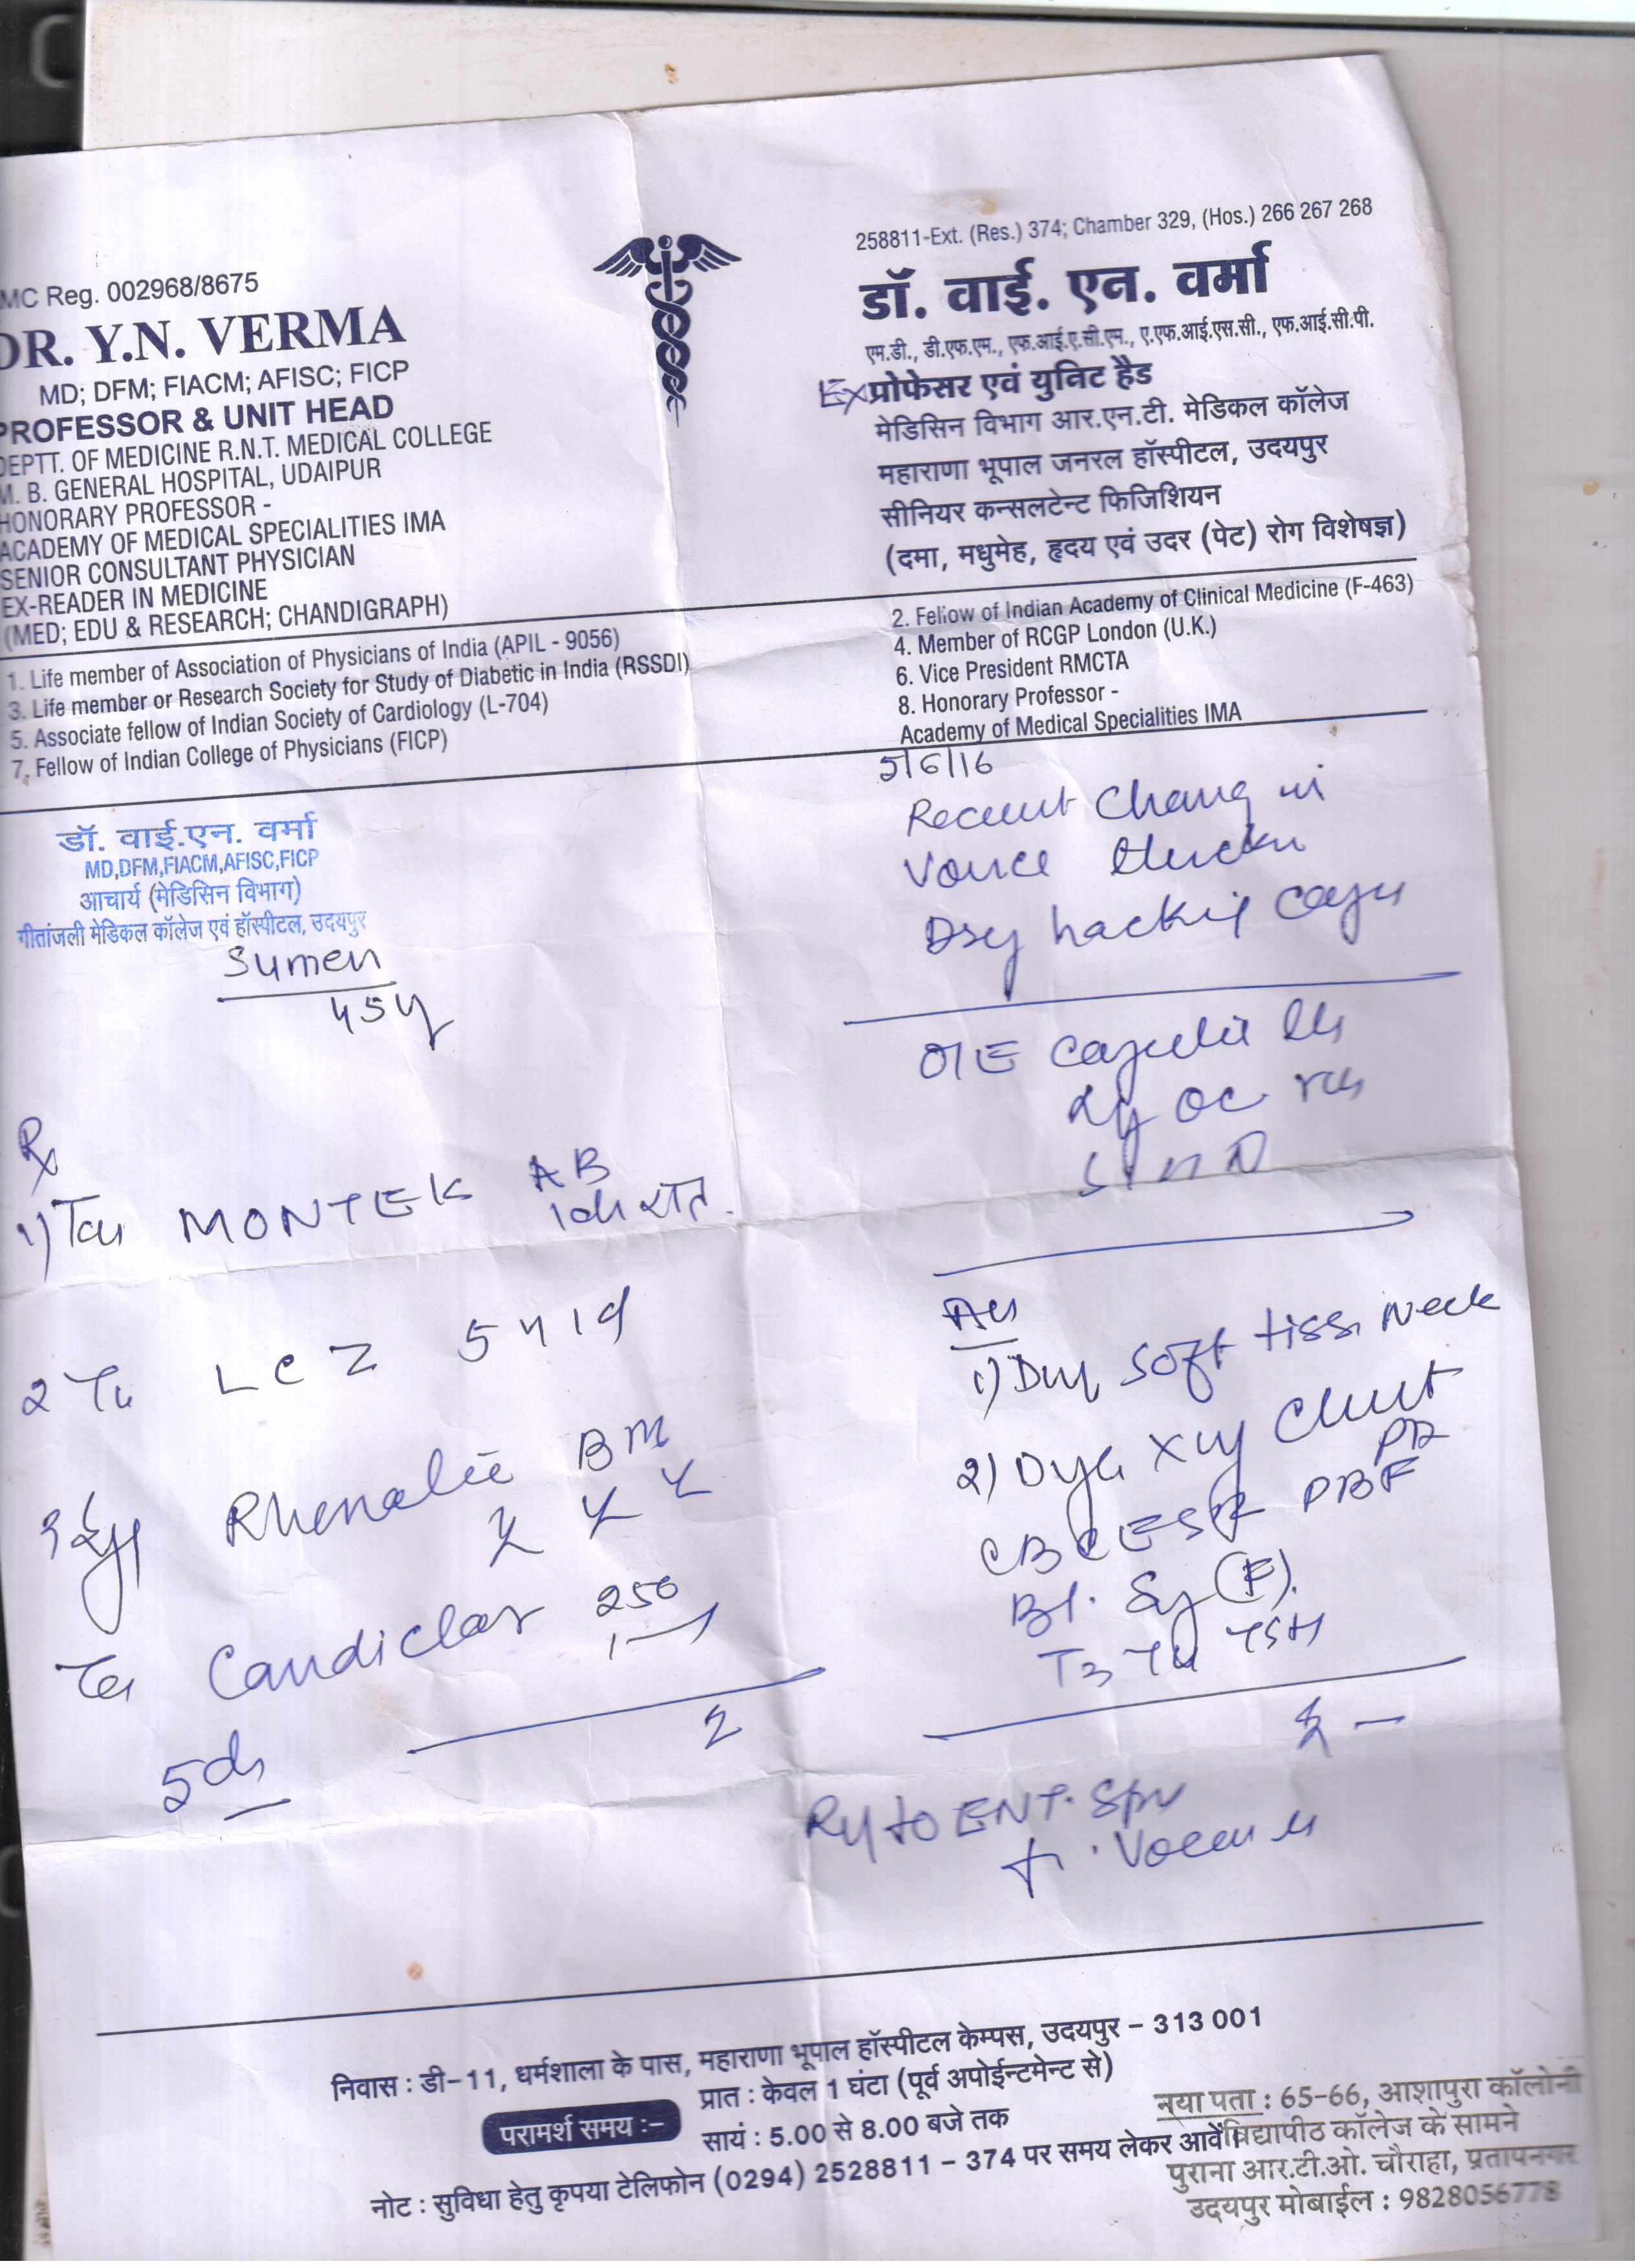 MC Reg. 002968/8675
DR. Y.N. VERMA
MD; DFM; FIACM; AFISC; FICP
PROFESSOR & UNIT HEAD
DEPTT. OF MEDICINE R.N.T. MEDICAL COLLEGE
M. B. GENERAL HOSPITAL, UDAIPUR
HONORARY PROFESSOR -
ACADEMY OF MEDICAL SPECIALITIES IMA
SENIOR CONSULTANT PHYSICIAN
EX-READER IN MEDICINE
(MED; EDU & RESEARCH; CHANDIGRAPH)
258811-Ext. (Res.) 374; Chamber 329, (Hos.) 266 267 268
डॉ. वाई. एन. वर्मा
एम.डी., डी.एफ.एम., एफ.आई.ए.सी.एम., ए.एफ.आई.एस.सी., एफ.आई.सी.पी.
Ex प्रोफेसर एवं युनिट हैड
मेडिसिन विभाग आर.एन.टी. मेडिकल कॉलेज
महाराणा भूपाल जनरल हॉस्पीटल, उदयपुर
सीनियर कन्सलटेन्ट फिजिशियन
(दमा, मधुमेह, हृदय एवं उदर (पेट) रोग विशेषज्ञ)
1. Life member of Association of Physicians of India (APIL - 9056)
3. Life member or Research Society for Study of Diabetic in India (RSSDI)
5. Associate fellow of Indian Society of Cardiology (L-704)
7. Fellow of Indian College of Physicians (FICP)
2. Fellow of Indian Academy of Clinical Medicine (F-463)
4. Member of RCGP London (U.K.)
6. Vice President RMCTA
8. Honorary Professor -
Academy of Medical Specialities IMA
डॉ. वाई.एन. वर्मा
MD,DFM,FIACM,AFISC,FICP
आचार्य (मेडिसिन विभाग)
गीतांजली मेडिकल कॉलेज एवं हॉस्पीटल, उदयपुर
Sumen
45y
Rx
1) MONTEK AB
2 LCZ 5
3 BM
250
5d
2
5/6/16
Recent Chang in
Dry hacking
O/E
Adv
1) soft tiss Neck
2) Xray Chest
PA
CBC ESR PBF
Bl. Sg (F).
T3 T4 TSH
to ENT.
निवास : डी-11, धर्मशाला के पास, महाराणा भूपाल हॉस्पीटल केम्पस, उदयपुर - 313 001
परामर्श समय :-
प्रात : केवल 1 घंटा (पूर्व अपोईन्टमेन्ट से)
सायं : 5.00 से 8.00 बजे तक
नोट : सुविधा हेतु कृपया टेलिफोन (0294) 2528811 - 374 पर समय लेकर आवें।
नया पता : 65-66, आशापुरा कॉलोनी
विद्यापीठ कॉलेज के सामने
पुराना आर.टी.ओ. चौराहा, प्रतापनगर
उदयपुर मोबाईल : 9828056778